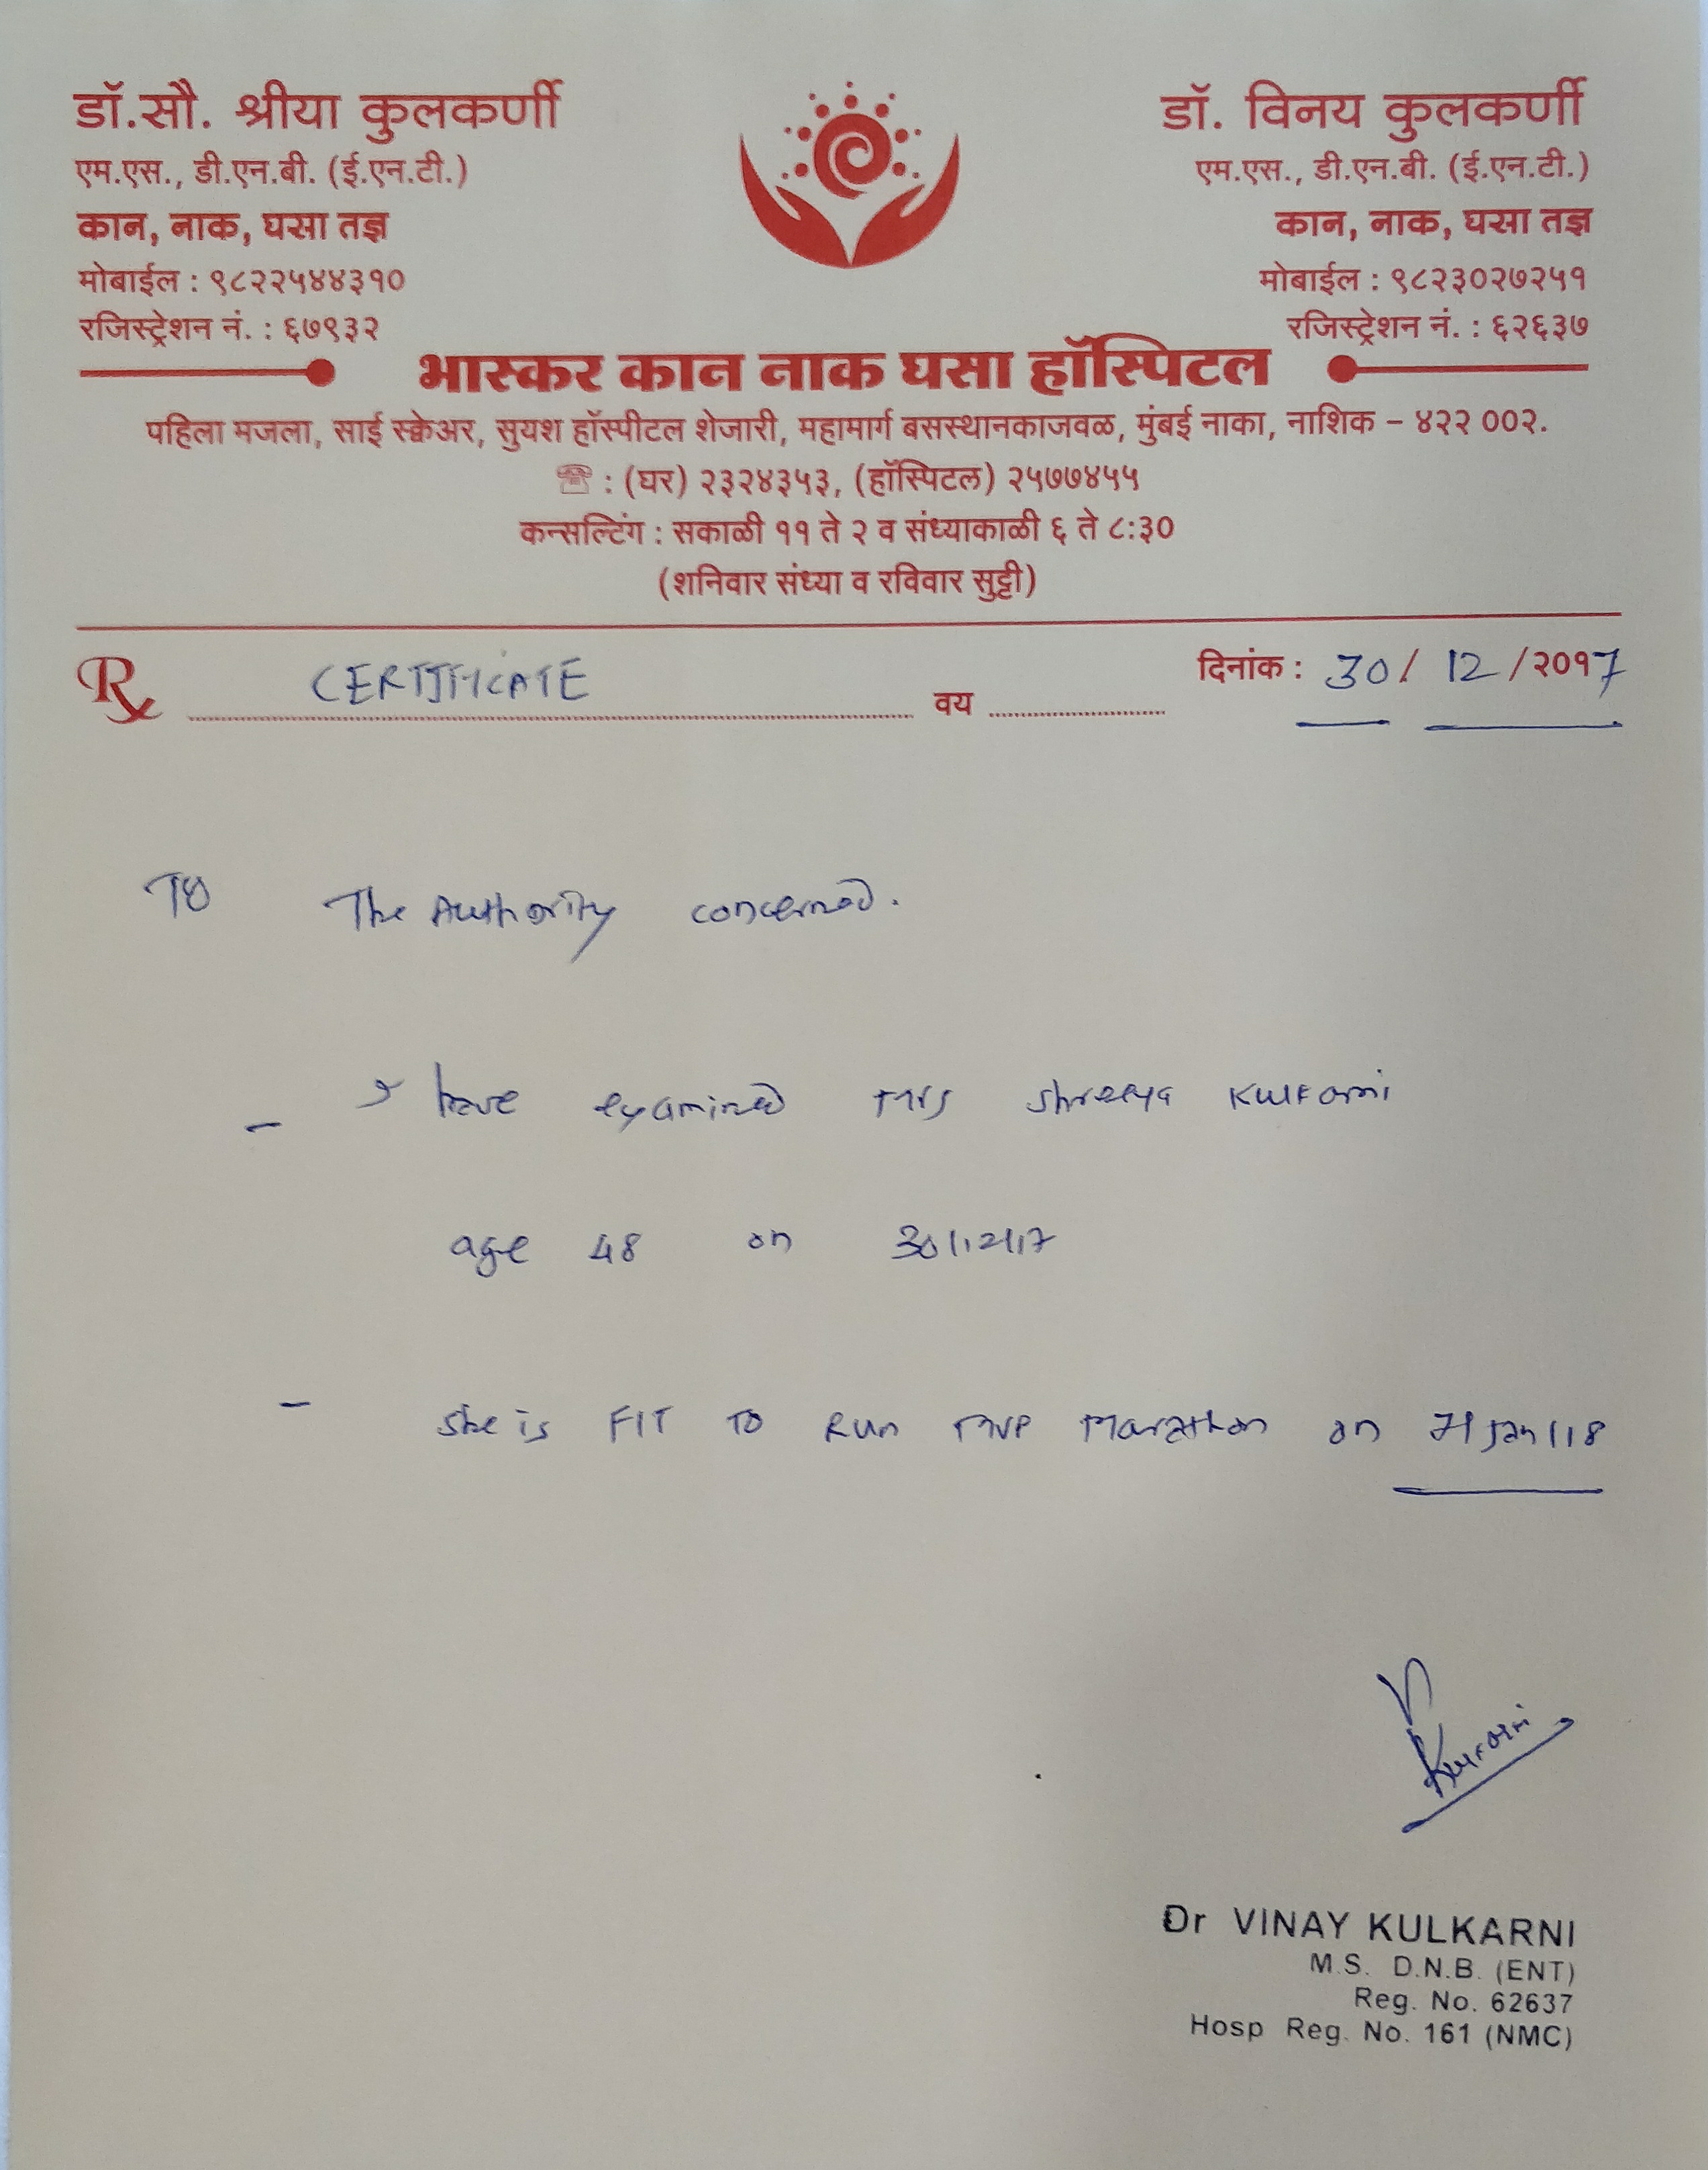 डॉ.सौ. श्रीया कुलकर्णी
एम.एस., डी.एन.बी. (ई.एन.टी.)
कान, नाक, घसा तज्ञ
मोबाईल : ९८२२५४४३१०
रजिस्ट्रेशन नं. : ६७९३२
डॉ. विनय कुलकर्णी
एम.एस., डी.एन.बी. (ई.एन.टी.)
कान, नाक, घसा तज्ञ
मोबाईल : ९८२३०२७२५१
रजिस्ट्रेशन नं. : ६२६३७
भास्कर कान नाक घसा हॉस्पिटल
पहिला मजला, साई स्क्वेअर, सुयश हॉस्पीटल शेजारी, महामार्ग बसस्थानकाजवळ, मुंबई नाका, नाशिक – ४२२ ००२.
: (घर) २३२४३५३, (हॉस्पिटल) २५७७४५५
कन्सल्टिंग : सकाळी ११ ते २ व संध्याकाळी ६ ते ८:३०
(शनिवार संध्या व रविवार सुट्टी)
Rx CERTIFICATE वय दिनांक : 30 / 12 / २०१7
TO The Authority concerned.
– I have examined Mrs Shreeya Kulkarni
age 48 on 30/12/17
– She is FIT TO Run MVP Marathon on 7/Jan/18
V Kulkarni
Dr VINAY KULKARNI
M.S. D.N.B. (ENT)
Reg. No. 62637
Hosp Reg. No. 161 (NMC)